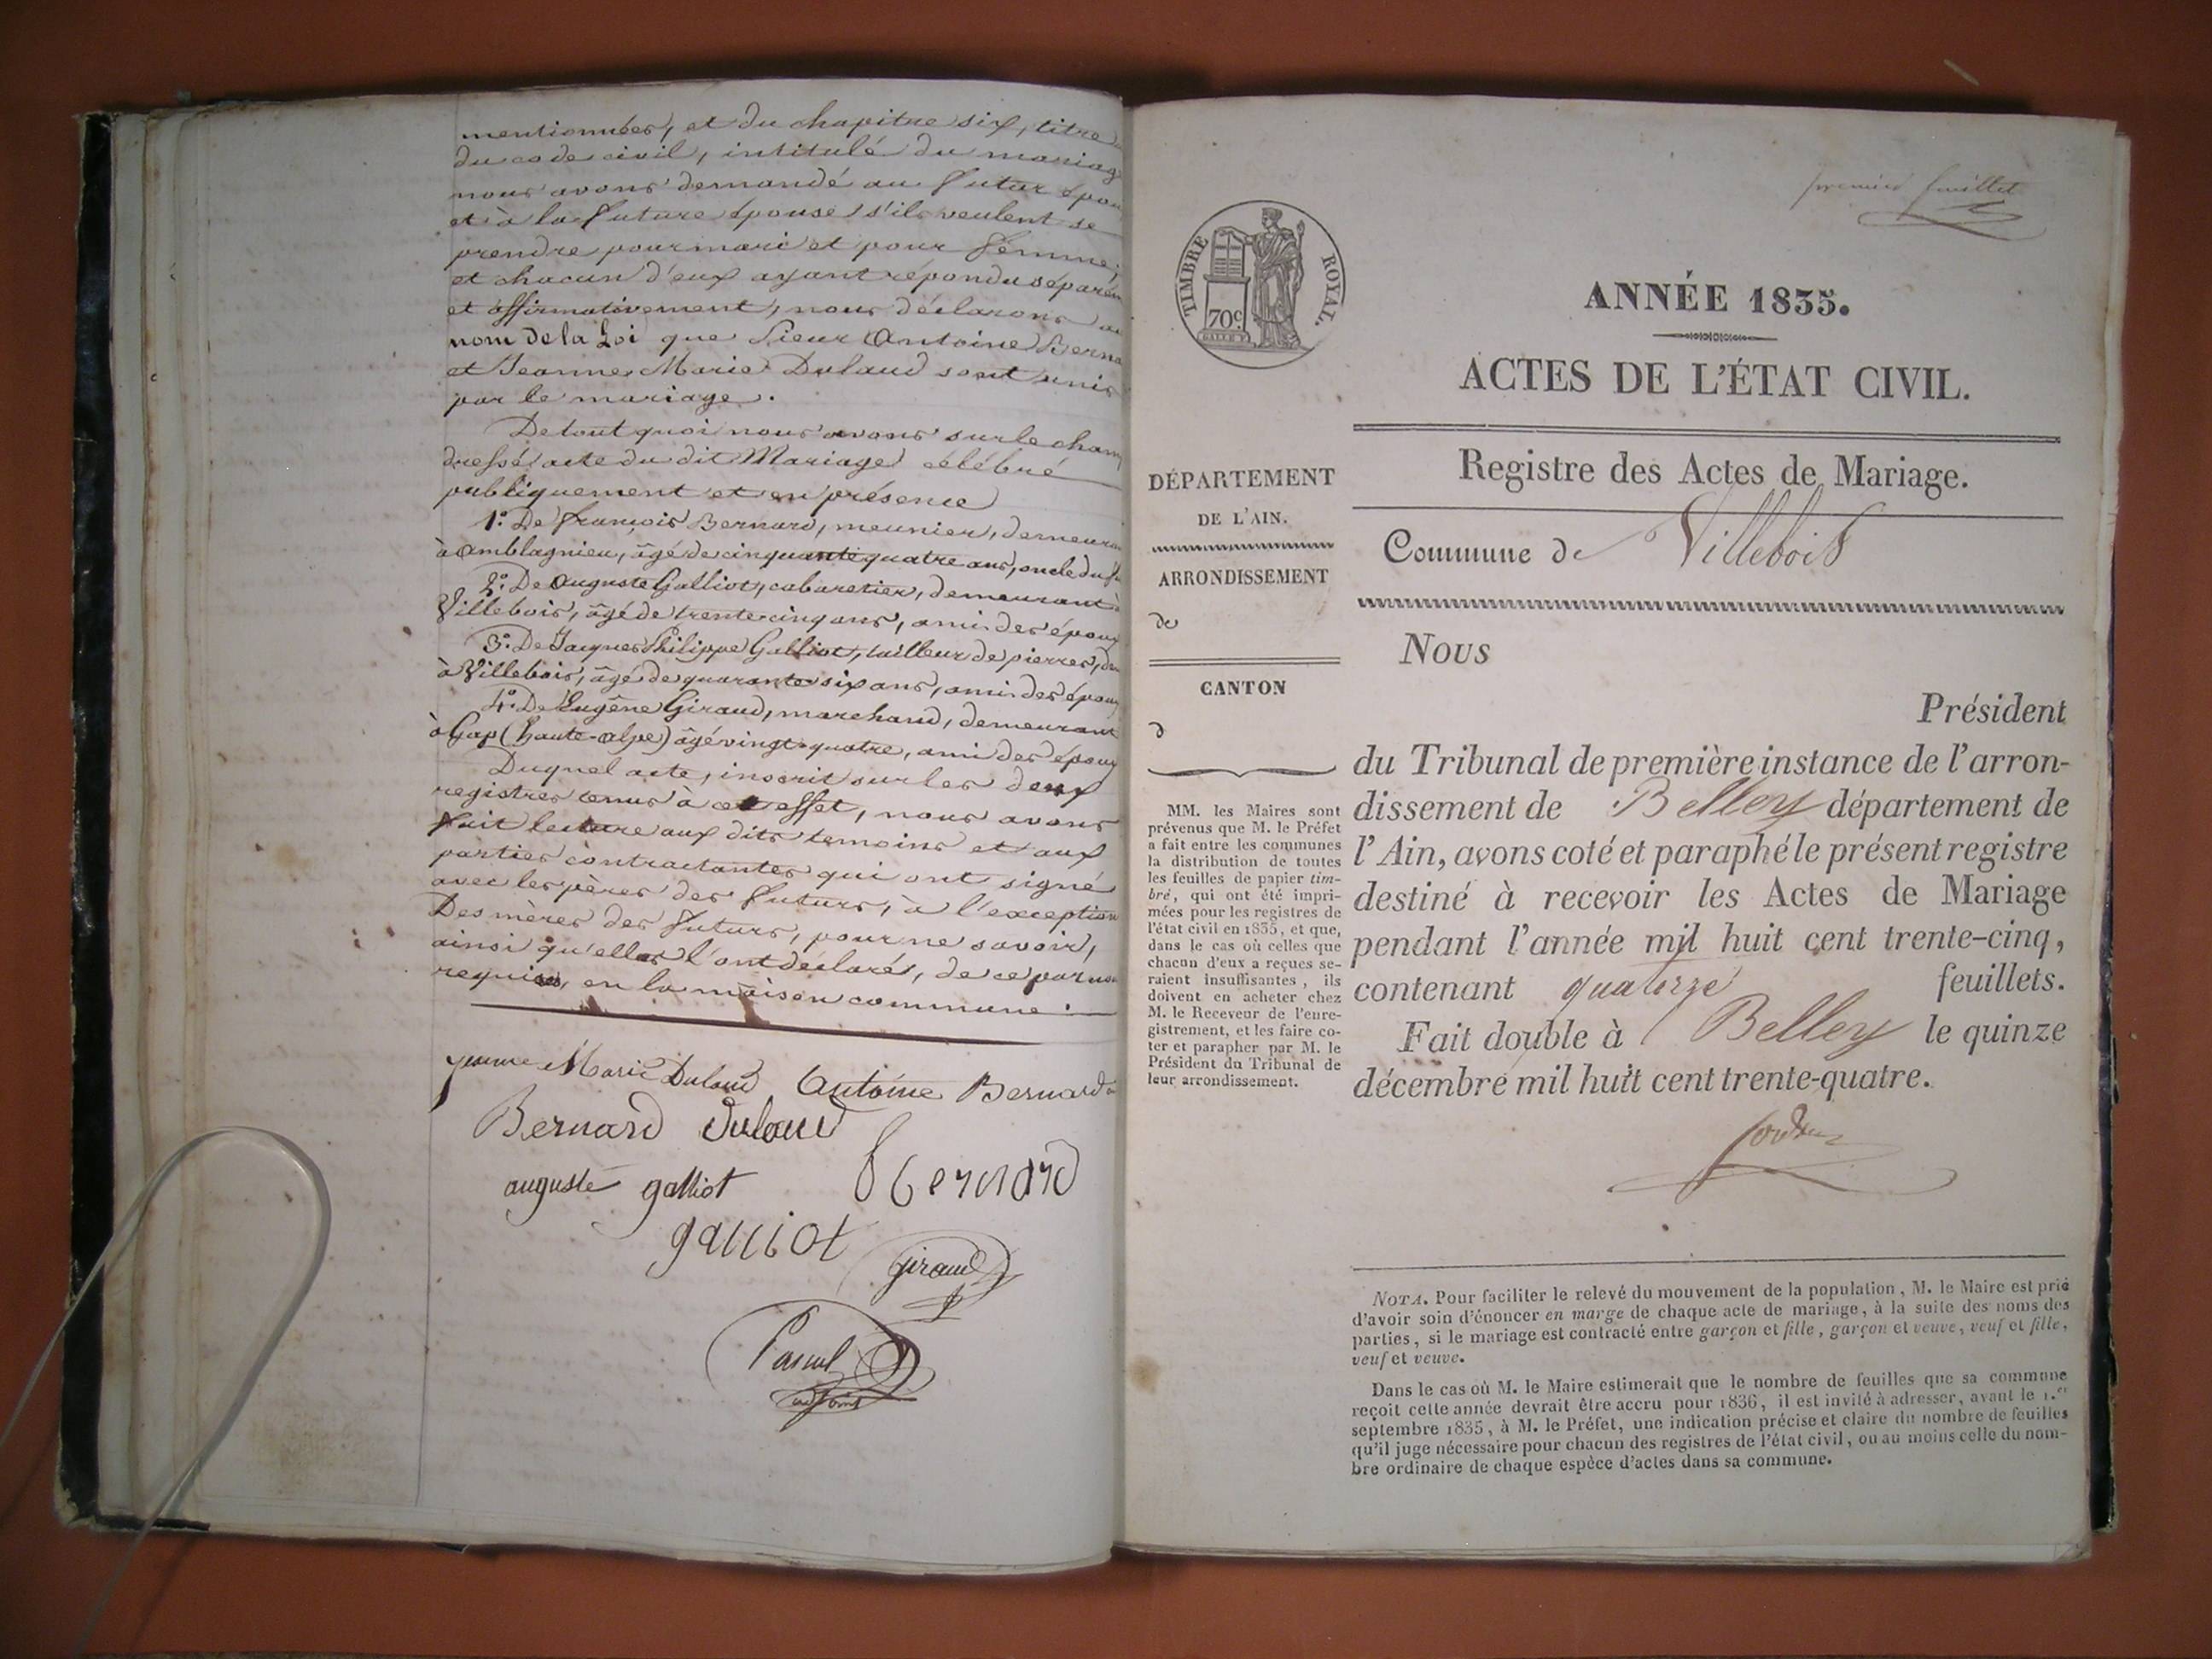 mentionnées, et du chapitre six, titre
du code civil, intitulé du mariag
nous avons demandé au futur épou
et à la future épouse s'ils veulent se
prendre pour mari et pour femme;
et chacun d'eux ayant répondu séparém
et affirmativement, nous déclarons au
nom de la Loi que Sieur Antoine Berna
et Jeanne Marie Dulaud sont unis
par le mariage.
De tout quoi nous avons sur le cham
dressé acte du dit Mariage célébré
publiquement et en présence
1º. De françois Bernard, meunier, demeuran
à amblagnieu, âgé de cinquante quatre ans, oncle du fu
2º. De Auguste Galliot, cabaretier, demeurant à
Villebois, âgé de trente cinq ans, ami des époux
3º. De Jacques Philippe Galliot, tailleur de pierres, dm
à Villebois, âgé de quarante six ans, ami des époux
4º. De Eugêne Giraud, marchand, demeurant
à Gap (haute-alpe) âgé vingt-quatre, ami des époux
Duquel acte, inscrit sur les deux
registres tenus à cet effet, nous avons
fait lecture aux dits temoins et aux
parties contractantes qui ont signé
avec les pères des futurs, à l'exception
Des mères des futurs, pour ne savoir,
ainsi qu'elles l'ont déclarés, de ce par nous
requises, en la maison commune.
jeanne Marie Dulaud Antoine Bernard
Bernard Dulaud
auguste galliot Bernard
galliot
giraud
Pascal
adjoint
premier feuillet
TIMBRE ROYAL.
70c
ANNÉE 1835.
ACTES DE L'ÉTAT CIVIL.
Registre des Actes de Mariage.
Commune de Villebois
DÉPARTEMENT
DE L'AIN.
ARRONDISSEMENT
de
CANTON
d
MM. les Maires sont
prévenus que M. le Préfet
a fait entre les communes
la distribution de toutes
les feuilles de papier tim-
bré, qui ont été impri-
mées pour les registres de
l'état civil en 1835, et que,
dans le cas où celles que
chacun d'eux a reçues se-
raient insuffisantes, ils
doivent en acheter chez
M. le Receveur de l'enre-
gistrement, et les faire co-
ter et parapher par M. le
Président du Tribunal de
leur arrondissement.
Nous
Président
du Tribunal de première instance de l'arron-
dissement de Belley département de
l'Ain, avons coté et paraphé le présent registre
destiné à recevoir les Actes de Mariage
pendant l'année mil huit cent trente-cinq,
contenant quatorze feuillets.
Fait double à Belley le quinze
décembre mil huit cent trente-quatre.
NOTA. Pour faciliter le relevé du mouvement de la population, M. le Maire est prié
d'avoir soin d'énoncer en marge de chaque acte de mariage, à la suite des noms des
parties, si le mariage est contracté entre garçon et fille, garçon et veuve, veuf et fille,
veuf et veuve.
Dans le cas où M. le Maire estimerait que le nombre de feuilles que sa commune
reçoit cette année devrait être accru pour 1836, il est invité à adresser, avant le 1.er
septembre 1835, à M. le Préfet, une indication précise et claire du nombre de feuilles
qu'il juge nécessaire pour chacun des registres de l'état civil, ou au moins celle du nom-
bre ordinaire de chaque espèce d'actes dans sa commune.